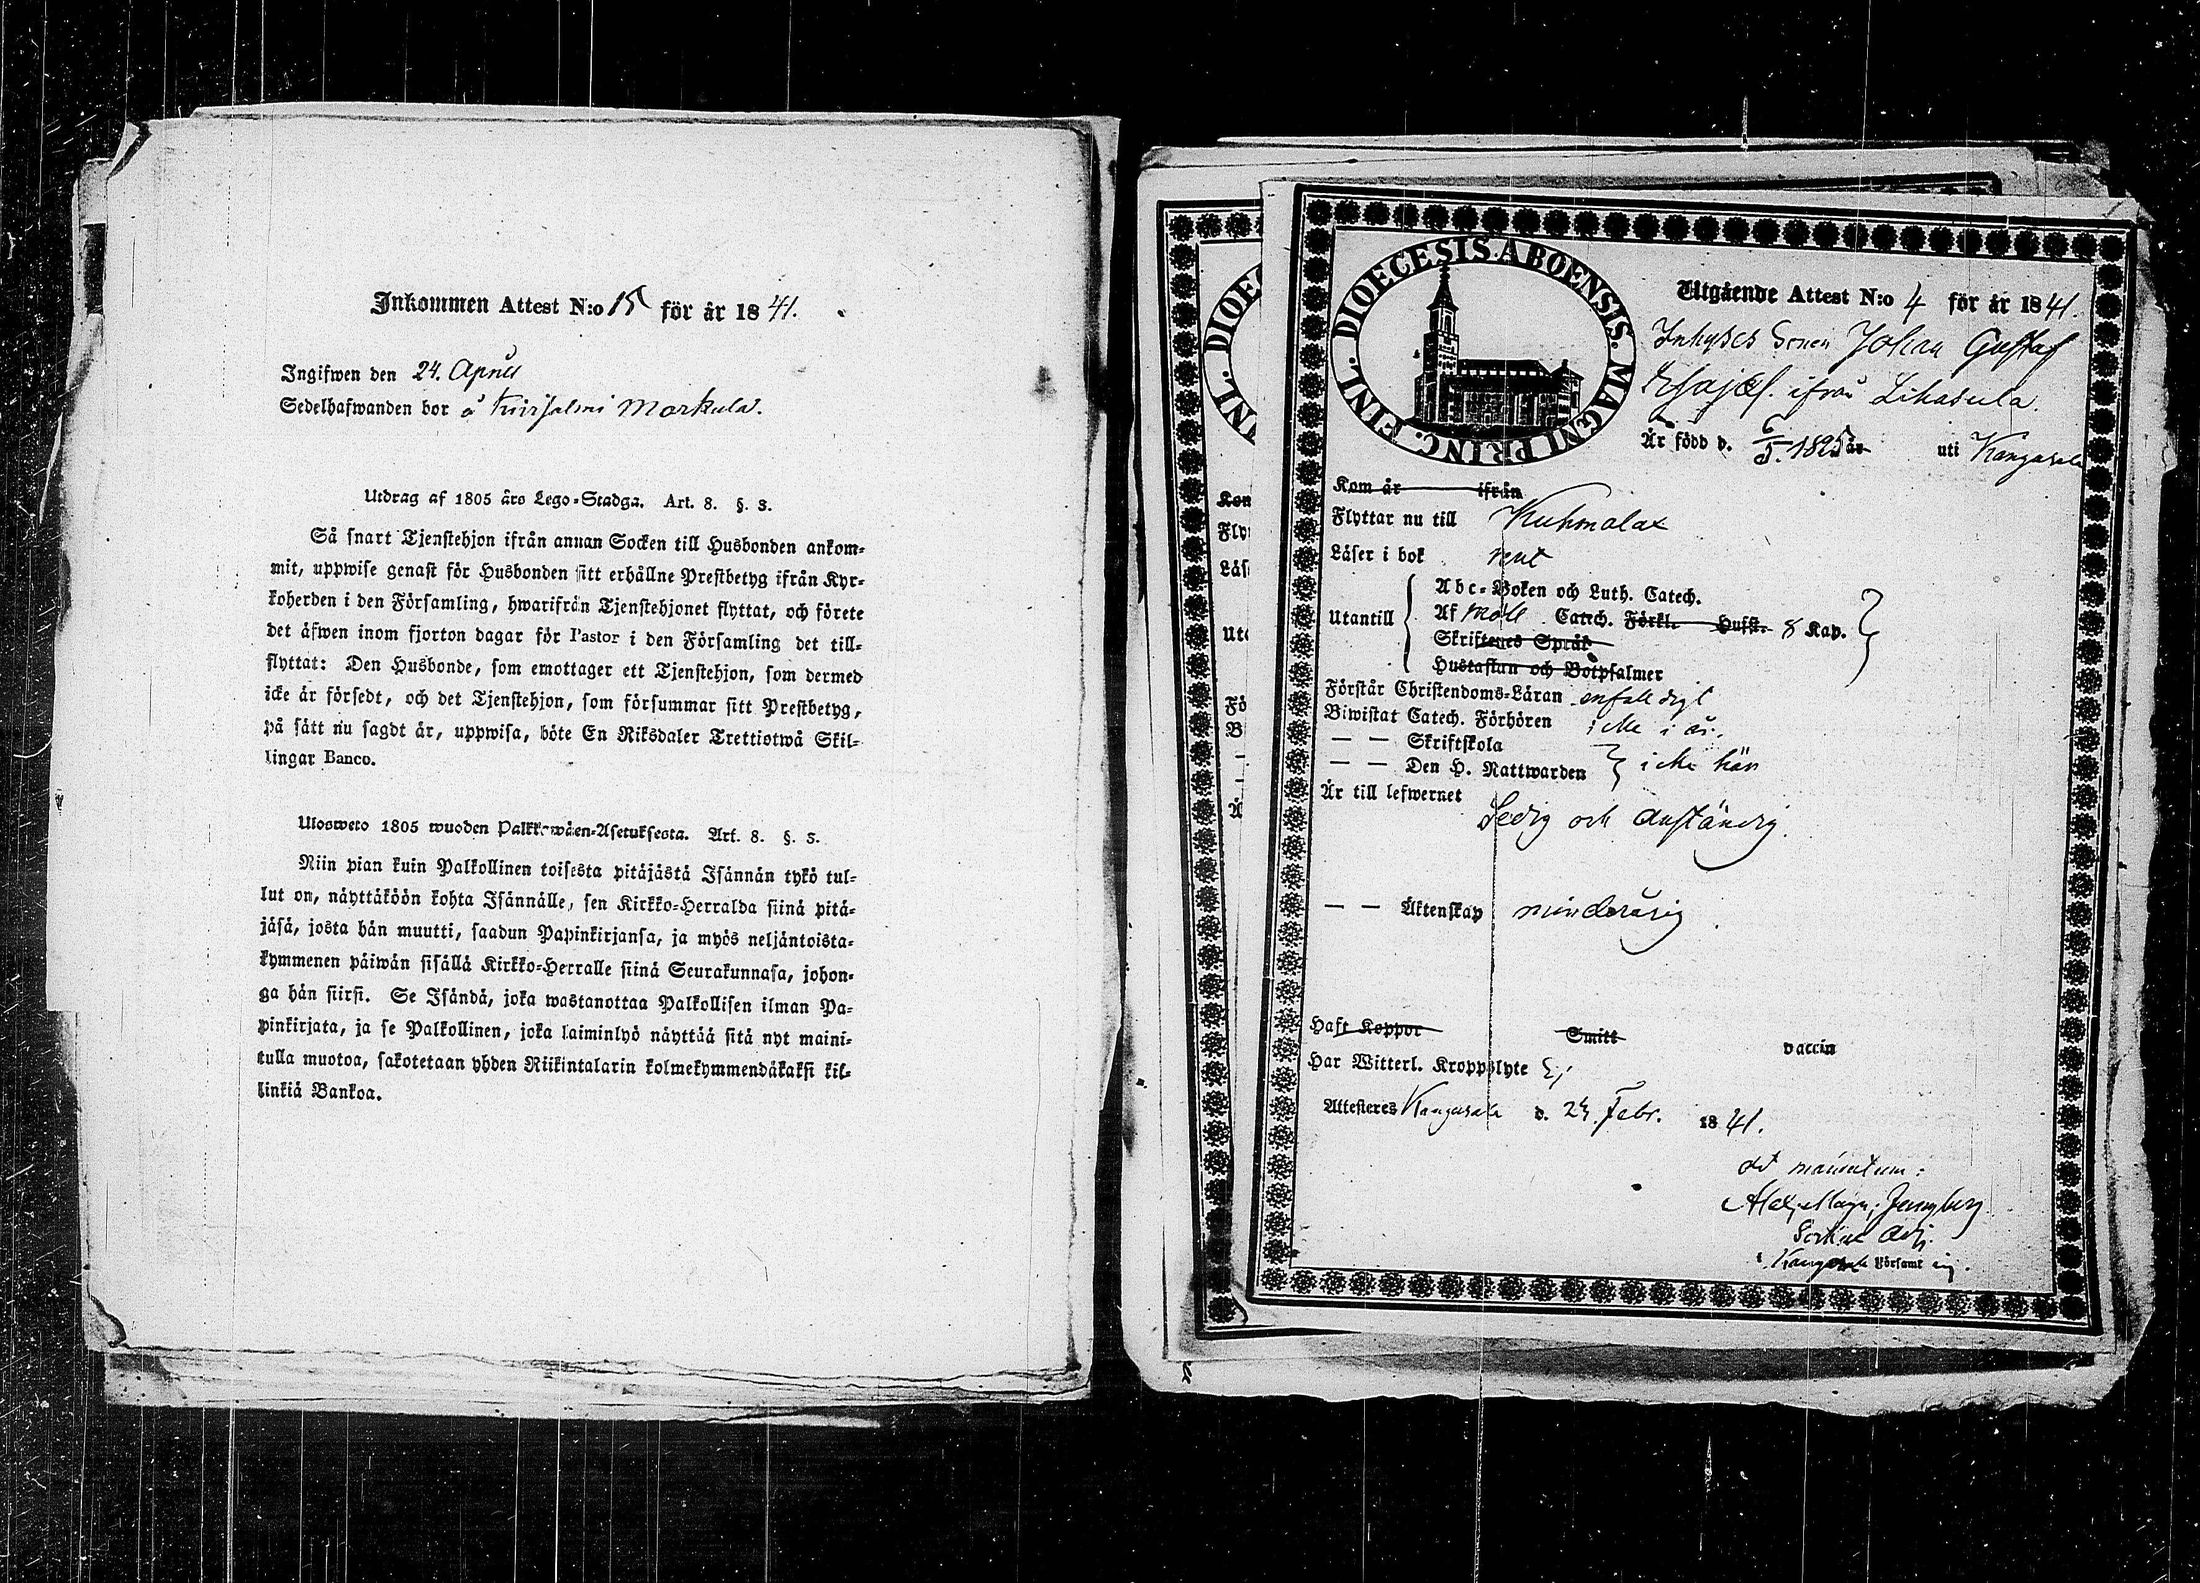 Inkommen Attest N:o 15 för år 1841.
Ingifwen den 24. April
Sedelhafwanden bor å Kuisjalmi Markula.
Utdrag af 1805 års Lego-Stadga. Art. 8. §. 3.
Så snart Tjenstehjon ifrån annan Socken till Husbonden ankom-
mit, uppwise genast för Husbonden sitt erhållne Prestbetyg ifrån Kyr-
koherden i den Församling, hwarifrån Tjenstehjonet flyttat, och förete
det äfwen inom fjorton dagar för Pastor i den Församling det till-
flyttat: Den Husbonde, som emottager ett Tjenstehjon, som dermed
icke är försedt, och det Tjenstehjon, som försummar sitt Prestbetyg,
på sätt nu sagdt är, uppwisa, böte En Riksdaler Trettiotwå Skil-
lingar Banco.
Ulosweto 1805 wuoden Palkkawäen-Asetuksesta. Art. 8. §. 3.
Niin pian kuin Palkollinen toisesta pitäjästä Isännän tykö tul-
lut on, näyttäköön kohta Isännälle, sen Kirkko-Herralda siinä pitä-
jäsä, josta hän muutti, saadun Papinkirjansa, ja myös neljäntoista-
kymmenen päiwän sisällä Kirkko-Herralle siinä Seurakunnasa, johon-
ga hän siirsi. Se Isändä, joka wastanottaa Palkollisen ilman Pa-
pinkirjata, ja se Palkollinen, joka laiminlyö näyttää sitä nyt maini-
tulla muotoa, sakotetaan yhden Riikintalarin kolmekymmendäkaksi kil-
linkiä Bankoa.
DIOECESIS ABOENSIS. MAGNI PRINC. FINL.
Utgående Attest N:o 4 för år 1841.
Inhyses Sonen Johan Gustaf
Esajæs. ifrån Lihasula.
Är född d. 6/5. 1825 år uti Kangasala
Kom år ifrån
Flyttar nu till Kuhmalax
Läser i bok rent
Utantill
Abc-Boken och Luth. Catech.
Af Möll. Catech. Förkl. Hufst. 8 Kap.
Skriftenes Språk
Hustaflan och Botpsalmer
Förstår Christendoms-Läran enfaldigt
Biwistat Catech. Förhören icke i år.
— — Skriftskola
— — Den H. Nattwarden icke här
Är till lefwernet
Sedig och anständig.
— — Äktenskap minderårig
Haft Koppor Smitt vaccin
Har Witterl. Kroppslyte Ej
Attesteras Kangasala d. 24 Febr. 1841.
ad mandatum:
Ljungberg
Adj.
i Kangasala Församling.